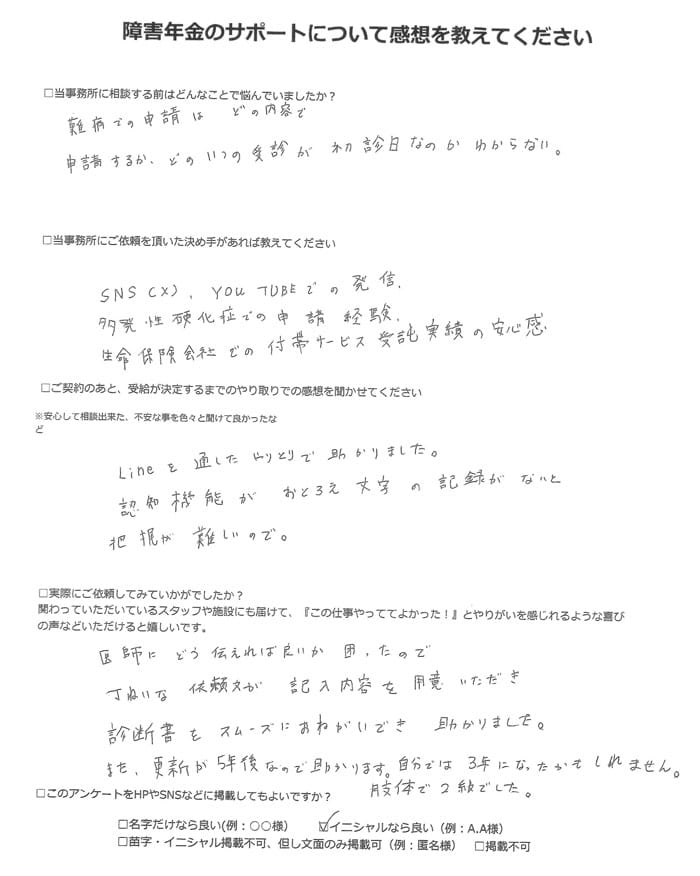 障害年金のサポートについて感想を教えてください
□当事務所に相談する前はどんなことで悩んでいましたか？
難病での申請は どの内容で
申請するか、どの いつの 受診が 初診日なのか わからない。
□当事務所にご依頼を頂いた決め手があれば教えてください
SNS（X）、YOU TUBEでの発信、
多発性硬化症での申請経験、
生命保険会社での付帯サービス受託実績の安心感
□ご契約のあと、受給が決定するまでのやり取りでの感想を聞かせてください
※安心して相談出来た、不安な事を色々と聞けて良かったな
ど
Lineを通したやりとりで助かりました。
認知機能が おとろえ 文字の記録がないと
把握が難しいので。
□実際にご依頼してみていかがでしたか？
関わっていただいているスタッフや施設にも届けて、『この仕事やっててよかった！』とやりがいを感じれるような喜び
の声などいただけると嬉しいです。
医師に どう伝えれば良いか 困ったので
丁ねいな 依頼文が 記入内容を用意いただき
診断書をスムーズにおねがいでき 助かりました。
また、更新が5年後なので助かります。自分では3年になったかもしれません。
肢体で2級でした。
□このアンケートをHPやSNSなどに掲載してもよいですか？
□名字だけなら良い(例：○○様） ☑イニシャルなら良い（例：A.A様）
□苗字・イニシャル掲載不可、但し文面のみ掲載可（例：匿名様） □掲載不可